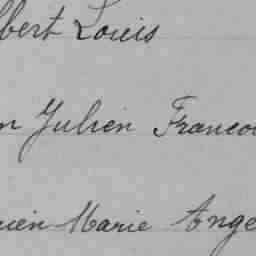 lbert Louis
n Julien Francoi
cien Marie Ange